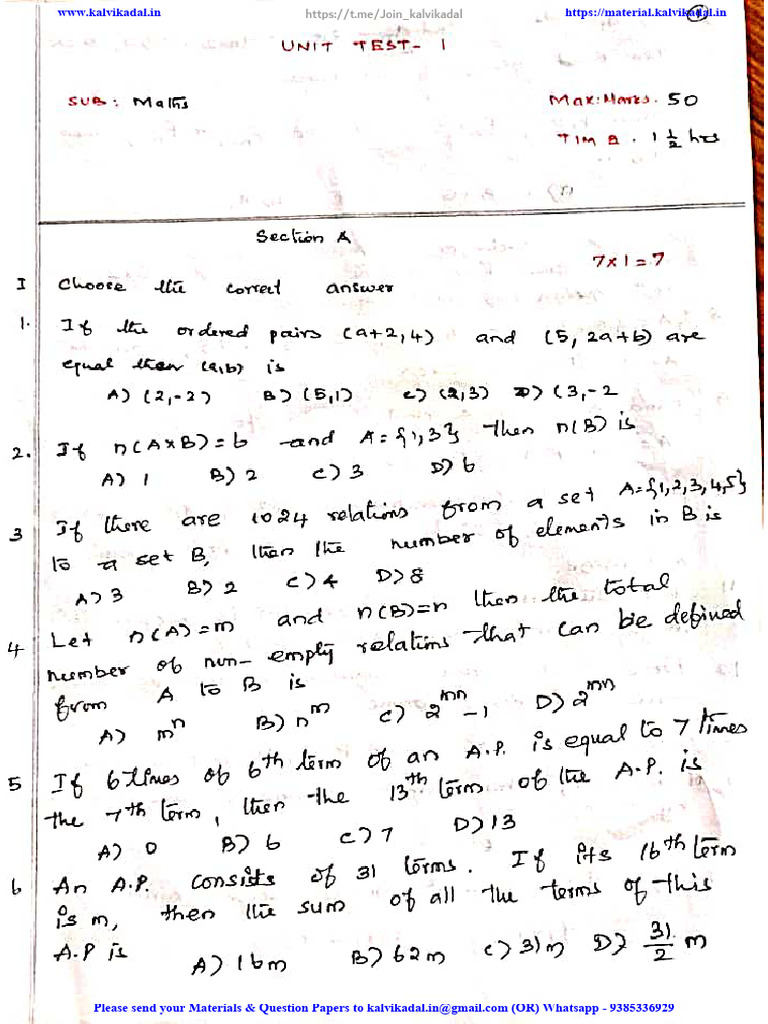 www.kalvikadal.in https://t.me/Join_kalvikadal https://material.kalvikadal.in
UNIT TEST- 1
SUB: Maths Max:Marks. 50
TIME. 1 1/2 hrs
Section A
7x1=7
I Choose the correct answer
1. If the ordered pairs (a+2,4) and (5, 2a+b) are
equal then (a,b) is
A) (2,-2) B) (5,1) C) (2,3) D) (3,-2
2. If n(AxB)=6 and A={1,3} then n(B) is
A) 1 B) 2 C) 3 D) 6
3 If there are 1024 relations from a set A={1,2,3,4,5}
to a set B, then the number of elements in B is
A) 3 B) 2 C) 4 D) 8
4 Let n(A)=m and n(B)=n then the total
number of non-empty relations that can be defined
from A to B is
A) m^n B) n^m C) 2^mn -1 D) 2^mn
5 If 6 times of 6th term of an A.P. is equal to 7 times
the 7th term, then the 13th term of the A.P. is
A) 0 B) 6 C) 7 D) 13
6 An A.P. consists of 31 terms. If its 16th term
is m, then the sum of all the terms of this
A.P is
A) 16m B) 62m C) 31m D) 31/2 m
Please send your Materials & Question Papers to kalvikadal.in@gmail.com (OR) Whatsapp - 9385336929